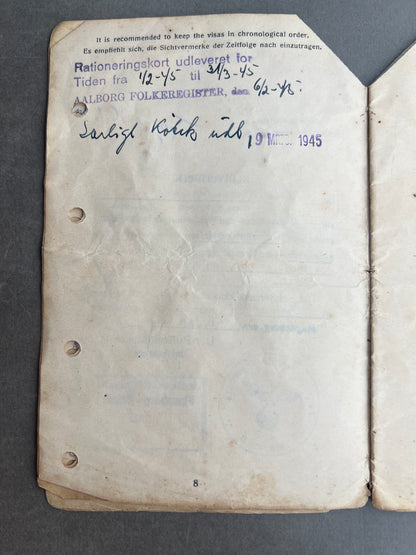 It is recommended to keep the visas in chronological order.
Es empfiehlt sich, die Sichtvermerke der Zeitfolge nach einzutragen.
Rationeringskort udleveret for
Tiden fra 1/2-45 til 31/3-45
AALBORG FOLKEREGISTER, den 6/2-45.
Særligt udb, 9 1945
8